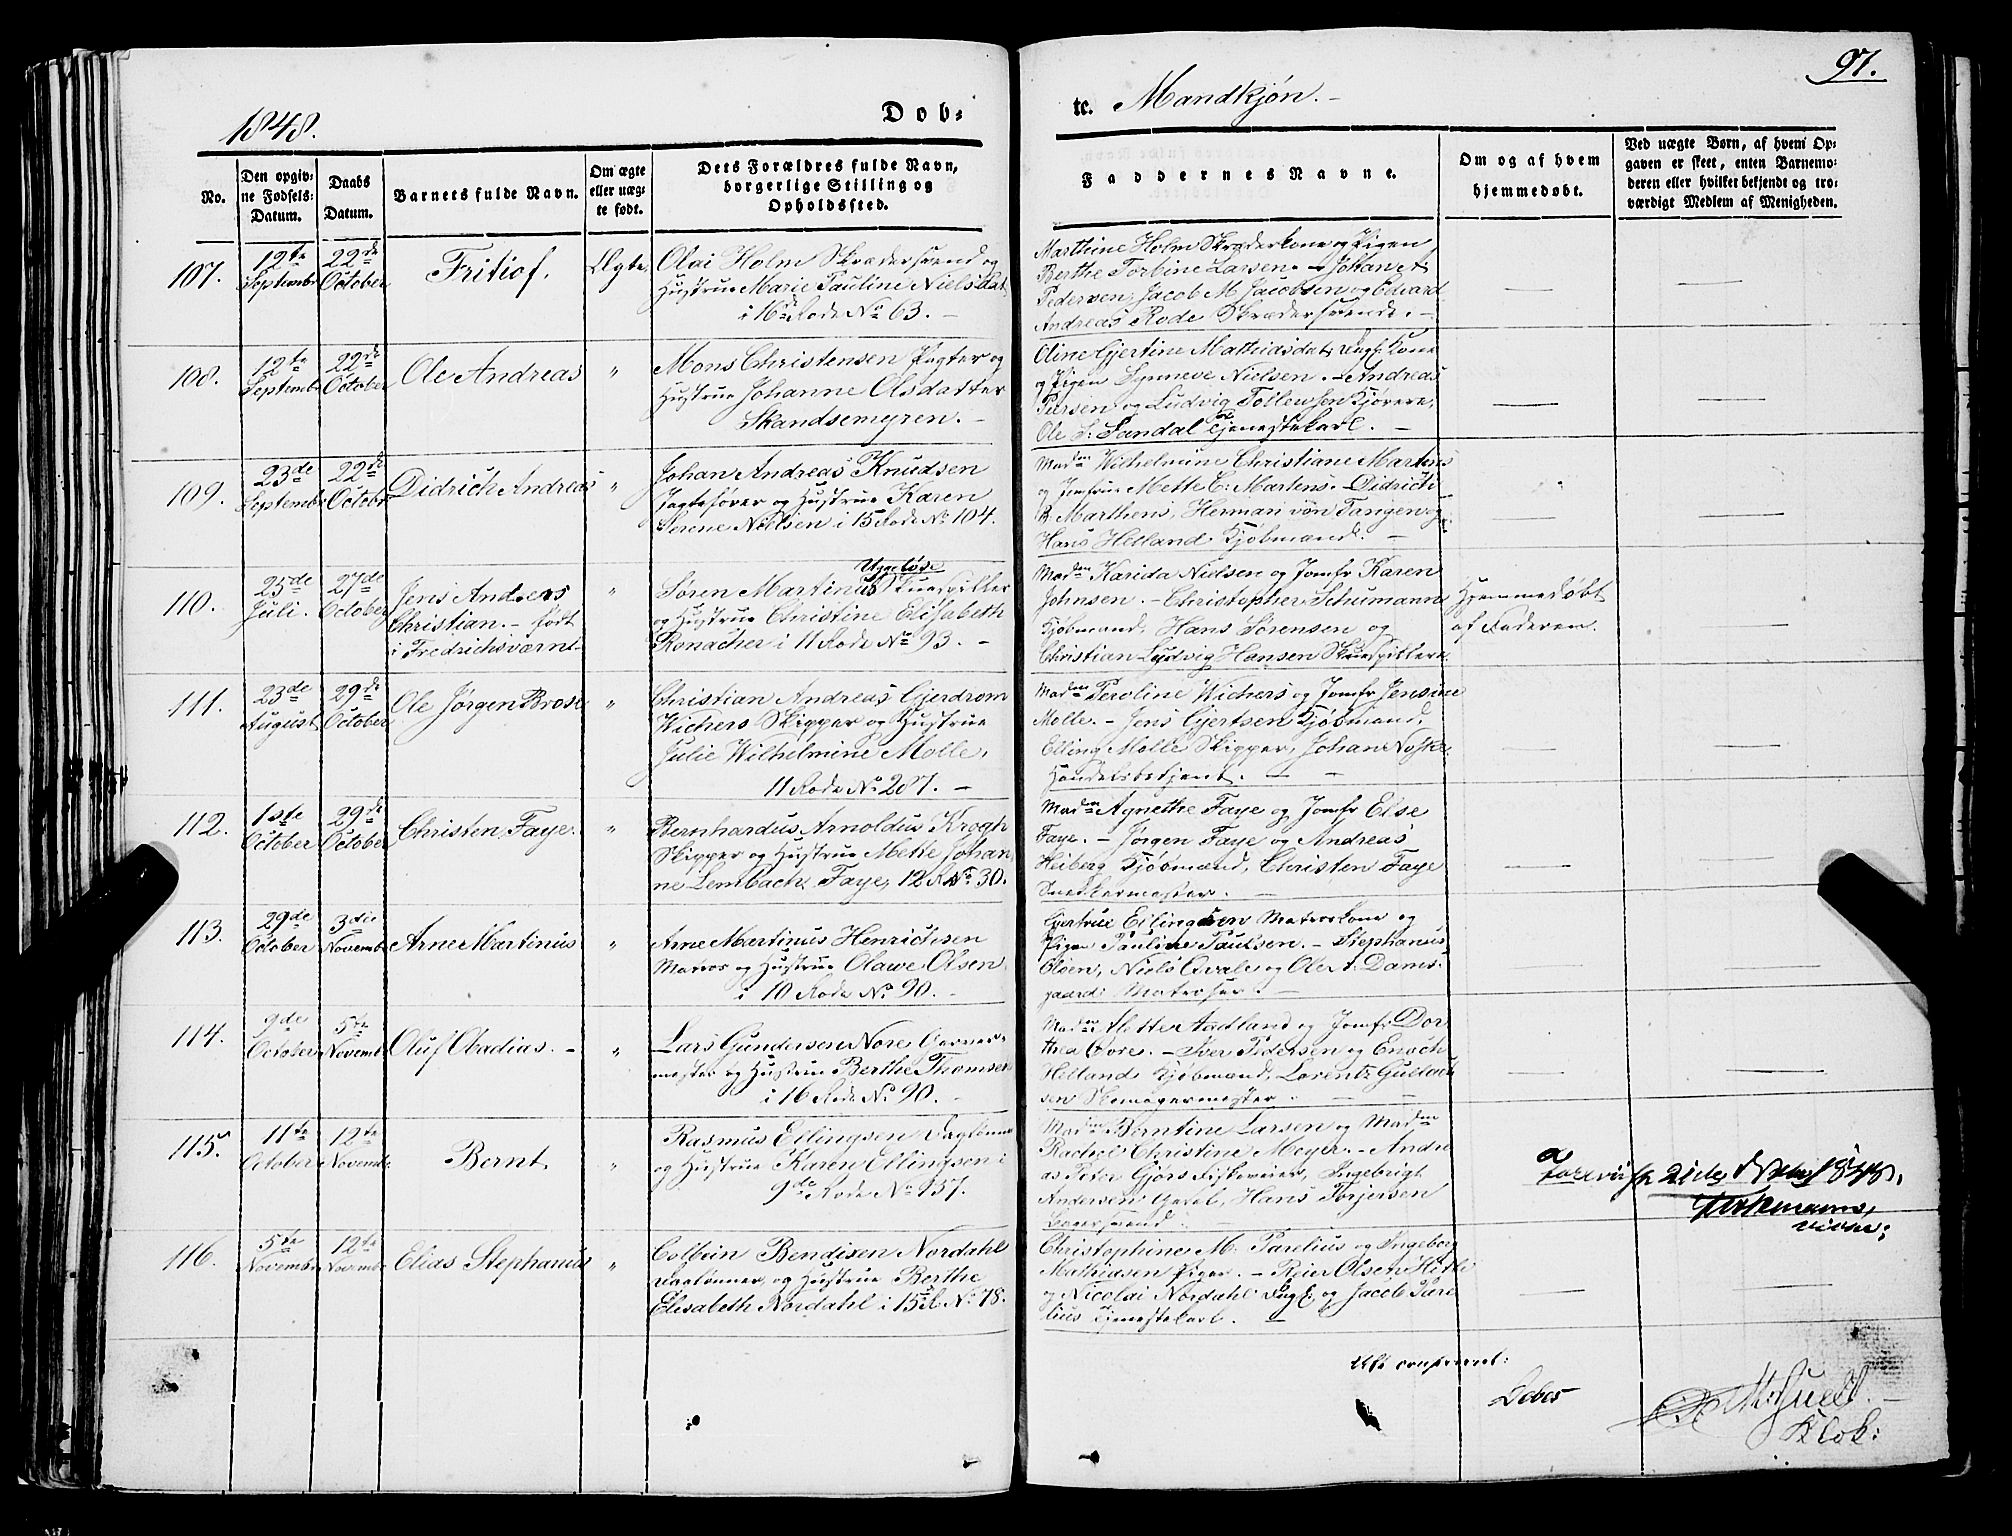 1848.
Dob-
te. Mandkjøn.
97.
No.
Den opgiv-
ne Fødsels-
Datum.
Daabs
Datum.
Barnets fulde Navn.
Om ægte
eller uæg-
te født.
Dets Forældres fulde Navn,
borgerlige Stilling og
Opholdssted.
Faddernes Navne.
Om og af hvem
hjemmedøbt.
Ved uægte Børn, af hvem Op-
gaven er skeet, enten Barnemo-
deren eller hvilket bekjendt og tro-
værdigt Medlem af Menigheden.
107.
12te
September
22de
October
Fritiof.
Ægte
Olai Holm Skrædersvend og
Hustrue Marie Pauline Nielsdat
i 16de Rode No 63. -
Marthine Holm Skræderkone og Pigen
Berthe Torbine Larsen. - Johan A
Pedersen, Jacob M. Jacobsen og Edvard
Andreas Rode Skrædersvende. -
108.
12te
September
22de
October
Ole Andreas
"
Mons Christensen Pagter og
Hustrue Johanne Olsdatter
Skandsemyren. -
Oline Gjertine Mathiasdat, Dagl: Kone
og Pigen Synneve Nielsen. - Andreas
Persen og Ludvig Tollevsen Kjørere,
Ole S: Sandal Tjenestekarl. -
109.
23de
September
22de
October
Didrich Andreas
"
Johan Andreas Knudsen
Jagtefører og Hustrue Karen
Serene Nielsen i 15 Rode No 104.
Maden Wilhelmine Christiane Martens
og Jomfrue Mette C: Martens. - Didrich
Marthens, Herman von Tangen og
Hans Helland Kjøbmænd. -
110.
25de
Juli.
27de
October
Jens Andreas
Christian. - født
i Fredrichsværn
"
Søren Martinus Skuespiller
og Hustrue Christine Elisabeth
Ronacher i 11 Rode No 93. -
Madn Karida Nielsen og Jomfr Karen
Johnsen. - Christopher Schumann
Kjøbmand, Hans Sørensen og
Christian Ludvig Hansen Skuespillere
Hjemmedøbt
af Faderen.
111.
23de
August
29de
October
Ole Jørgen Brose
"
Christian Andreas Gjerdrom
Wichers Skipper og Hustrue
Julie Wilhelmine Molle,
11 Rode No 207. -
Madn Peroline Wichers og Jomfr Jensine
Molle. - Jens Gjertsen Kjøbmand,
Elling Molle Skipper, Johan
Handelsbetjent. -
112.
1ste
October
29de
October
Christen Faye.
"
Bernhardus Arnoldus Krogh
Skipper og Hustrue Mette Johan-
ne Lembach Faye, 12 R No 30.
Madn Agnethe Faye og Jomfr Else
Faye. - Jørgen Faye og Andreas
Heiberg Kjøbmænd, Christen Faye
Snedkermester. -
113.
29de
October
3die
November
Arne Martinus
"
Arne Martinus Henrichsen
Matros og Hustrue Olawe Olsen
i 10 Rode No 90. -
Gjertrue Ellingsen Matroskone og
Pigen Pauline Paulsen. - Stephanus
Olsen, Niels Qvale og Ole A: Dams-
gaard Matroser. -
114.
9de
October
5te
Novemb
Oluf Obadias. -
"
Lars Gundersen Nore Garver-
mester og Hustrue Berthe Thomsen
i 16 Rode No 90. -
Madn Mette Aadland og Jomfr: Dor-
thea Øvre. - Iver Pedersen og Enoch
Helland Kjøbmænd, Lorentz Gullach-
sen Skomagermester. -
115.
11te
October
12te
Novemb
Bernt
"
Rasmus Ellingsen Daglønner
og Hustrue Karen Ellingsen i
9de Rode No 157.
Madn Berntine Larsen og Madn
Rachel Christine Meyer. - Andre-
as Peter Gjørs Fiskeveier, Ingebrigt
Andersen Hans Torjersen
Bagersvend. -
116.
5te
November
12te
Novembr
Elias Stephanus
"
Colbein Bendixen Nordahl
Daglønner, og Hustrue Berthe
Elisabeth Nordahl i 15 R No 78.
Christophine M. Parelius og Ingeborg
Mathiasen Piger. - Reier Olsen Hitle
og Nicolai Nordahl Dagl: og Jacob Pare-
lius Tjenestekarl. -
Debes
Klok: